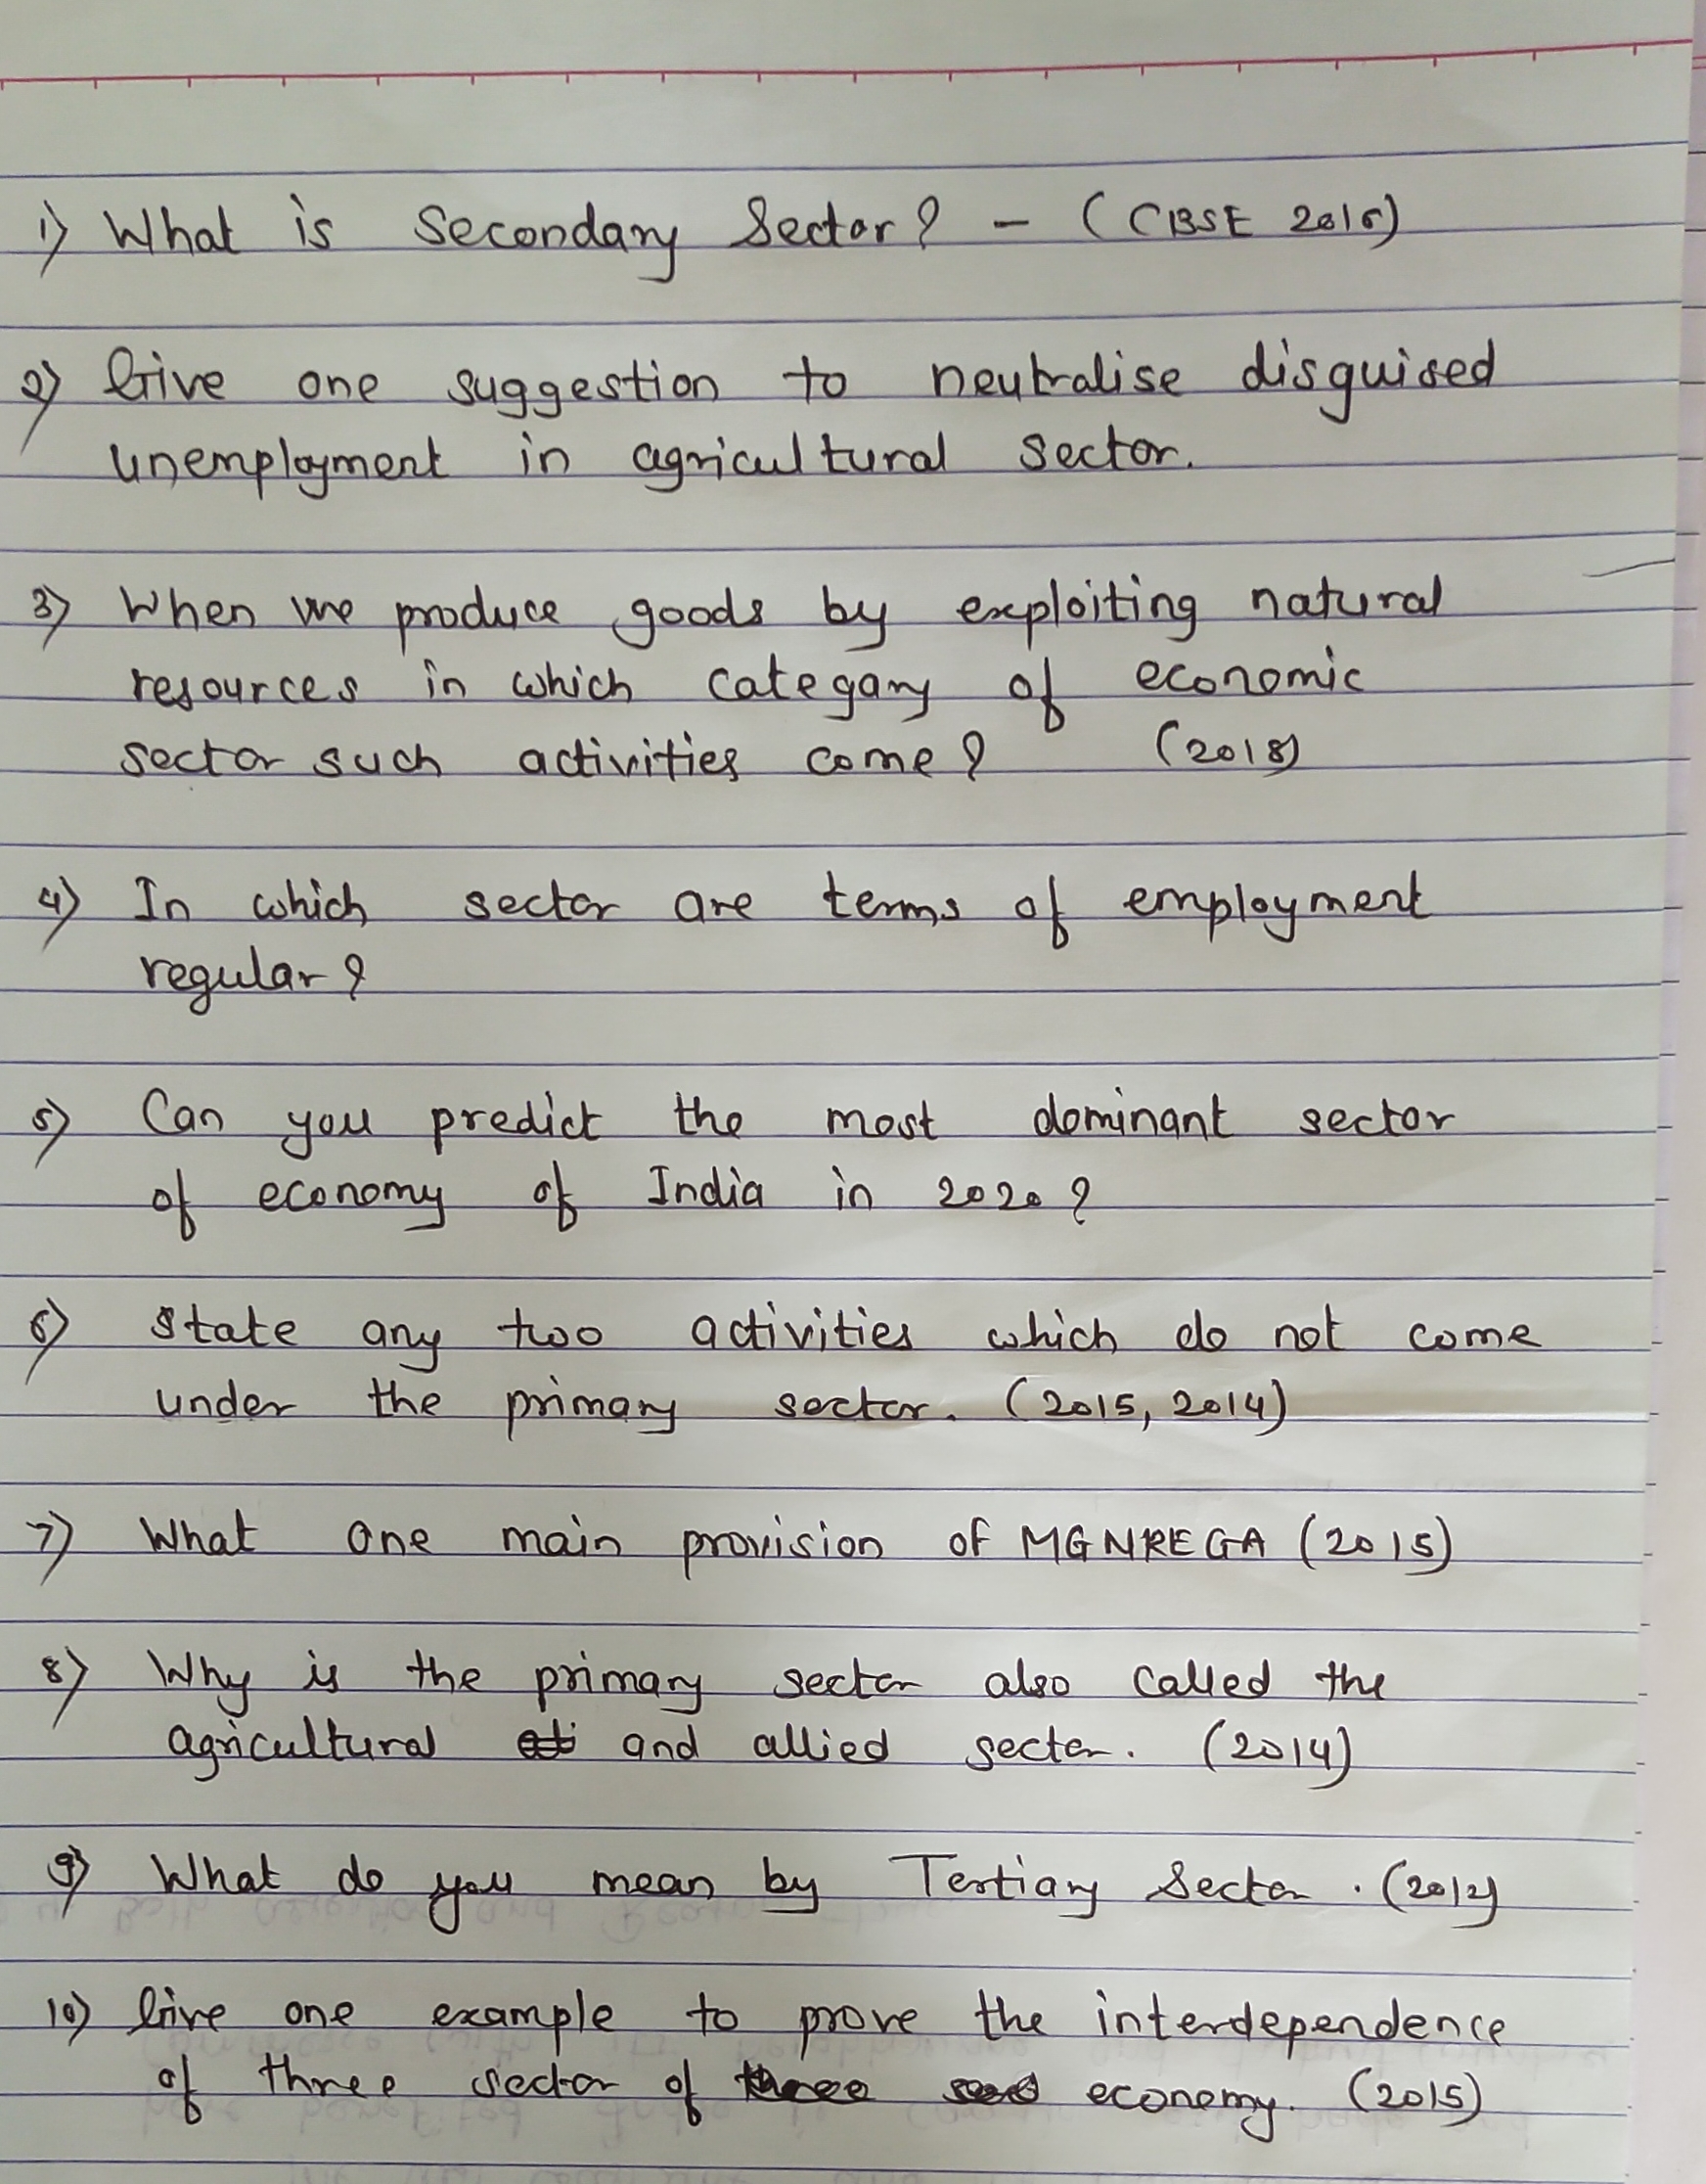 1) What is Secondary Sector? - (CBSE 2016)
2) Give one suggestion to neutralise disguised
unemployment in agricultural sector.
3) When we produce goods by exploiting natural
resources in which categary of economic
sector such activities come? (2018)
4) In which sector are terms of employment
regular?
5) Can you predict the most dominant sector
of economy of India in 2020?
6) State any two activities which do not come
under the primary sector. (2015, 2014)
7) What one main provision of MGNREGA (2015)
8) Why is the primary sector also called the
agricultural and allied sector. (2014)
9) What do you mean by Tertiary Sector. (2012)
10) Give one example to prove the interdependence
of three sector of economy. (2015)